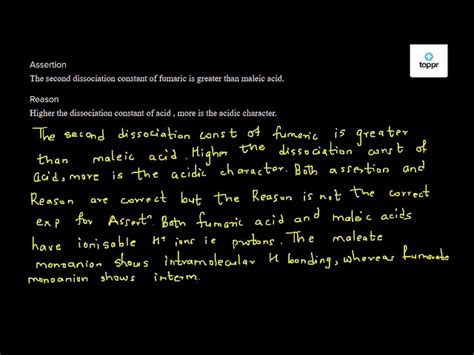 toppr
Assertion
The second dissociation constant of fumaric is greater than maleic acid.
Reason
Higher the dissociation constant of acid , more is the acidic character.
The second dissociation const of fumaric is greater
than maleic acid. Higher the dissociation const of
acid, more is the acidic character. Both assertion and
Reason are correct but the Reason is not the correct
exp for Assertn. Both fumaric acid and maleic acids
have ionisable H+ ions ie protons. The maleate
monoanion shows intramolecular H bonding, whereas fumerate
monoanion shows interm